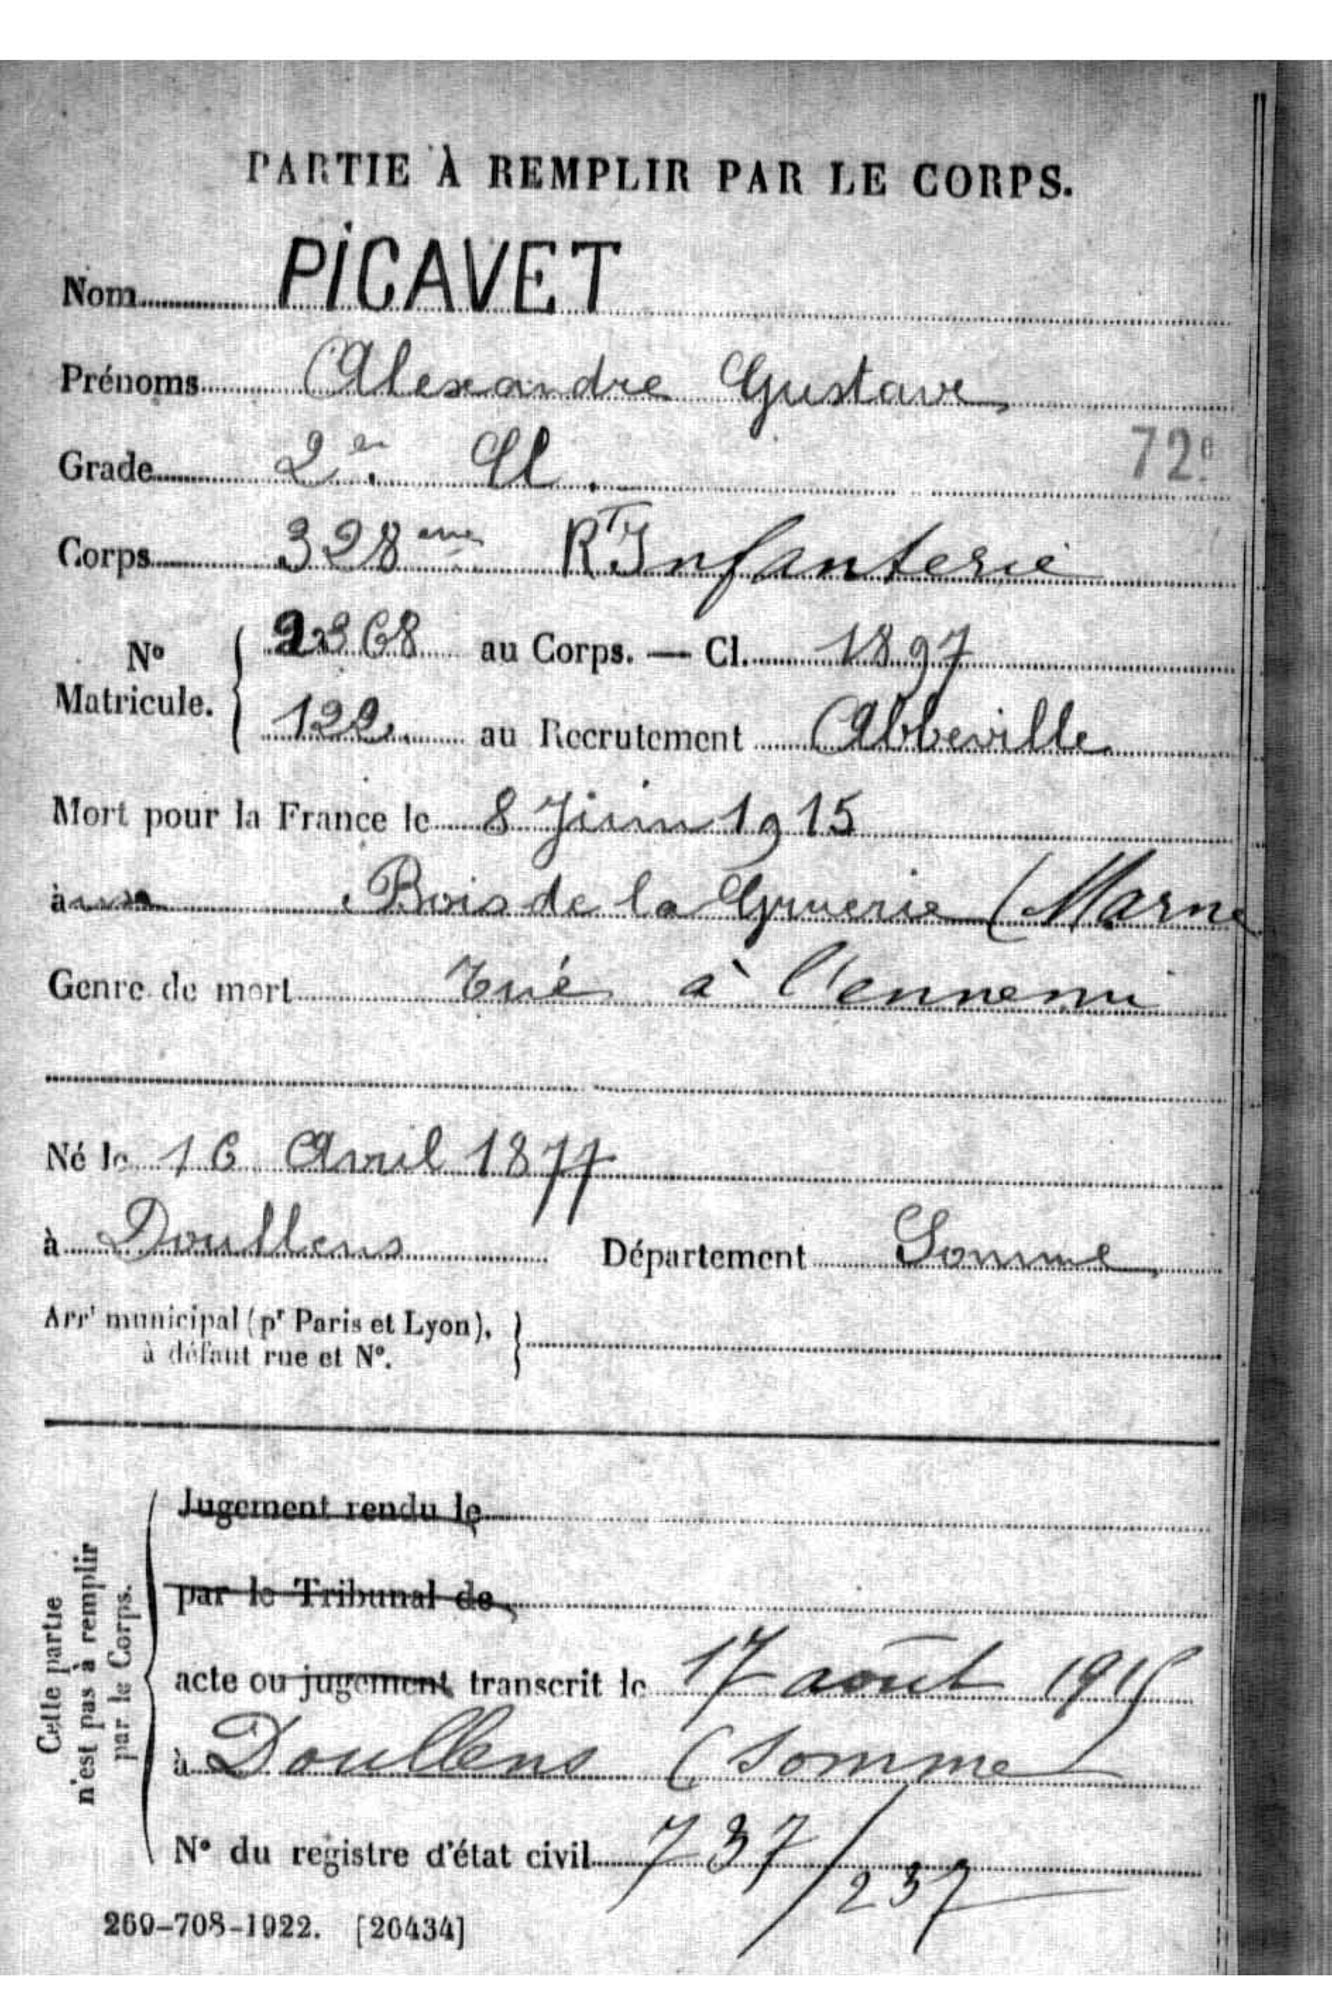 PARTIE À REMPLIR PAR LE CORPS.
Nom PICAVET
Prénoms Alexandre Gustave
Grade 2e Cl. 72e
Corps 328eme RT Infanterie
No Matricule. 2368 au Corps. — Cl. 1897
122 au Recrutement Abbeville
Mort pour la France le 8 Juin 1915
à Bois de la Gruerie (Marne
Genre de mort Tué à l'ennemi
Né le 16 Avril 1877
à Doullens Département Somme
Arrt municipal (pr Paris et Lyon),
à défaut rue et No.
Cette partie n'est pas à remplir par le Corps.
Jugement rendu le
par le Tribunal de
acte ou jugement transcrit le 17 août 1915
à Doullens (Somme
No du registre d'état civil 737/237
269-708-1922. [26434]